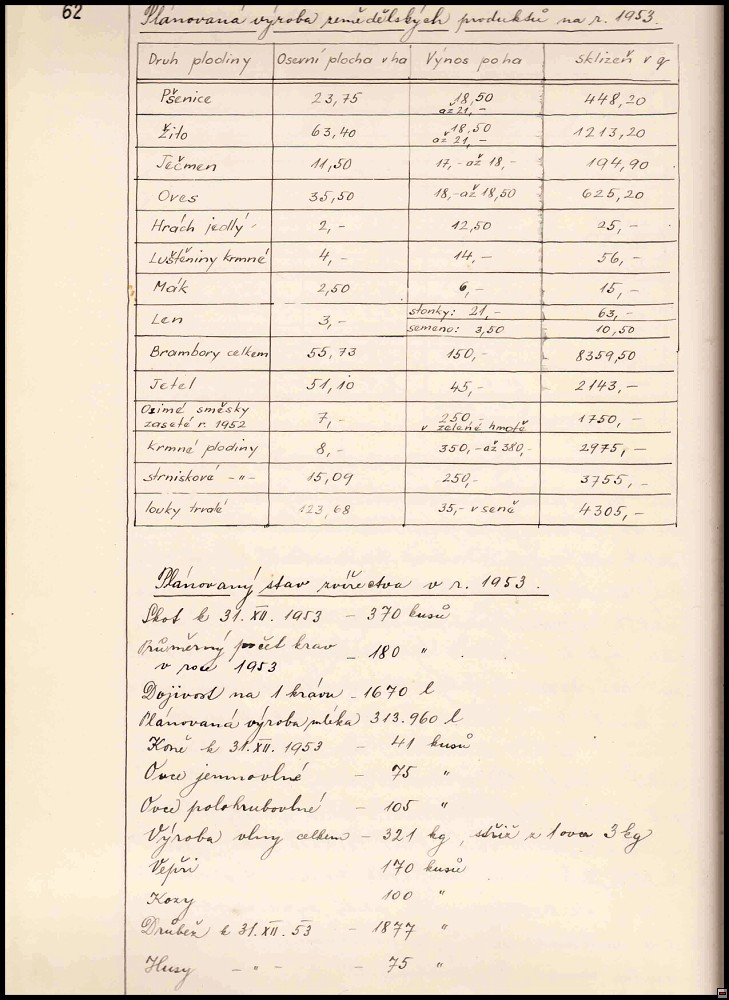 62
Plánovaná výroba zemědělských produktů na r. 1953.
Druh plodiny Osevní plocha v ha Výnos po ha sklizeň v q
Pšenice 23,75 18,50 až 21,- 448,20
Žito 63,40 18,50 až 21,- 1213,20
Ječmen 11,50 17,- až 18,- 194,90
Oves 35,50 18,- až 18,50 625,20
Hrách jedlý 2,- 12,50 25,-
Luštěniny krmné 4,- 14,- 56,-
Mák 2,50 6,- 15,-
Len 3,- stonky: 21,- 63,-
semeno: 3,50 10,50
Brambory celkem 55,73 150,- 8359,50
Jetel 51,10 45,- 2143,-
Ozimé směsky 7,- 250,- 1750,-
zaseté r. 1952 v zelené hmotě
Krmné plodiny 8,- 350,- až 380,- 2975,-
strniskové -"- 15,09 250,- 3755,-
louky trvalé 123,68 35,- v seně 4305,-
Plánovaný stav zvířectva v r. 1953.
Skot k 31. XII. 1953 - 370 kusů
Průměrný počet krav
v roce 1953 - 180 "
Dojivost na 1 krávu - 1670 l
Plánovaná výroba mléka 313.960 l
Koně k 31. XII. 1953 - 41 kusů
Ovce jemnovlné - 75 "
Ovce polohrubovlné - 105 "
Výroba vlny celkem - 321 kg, střiž z 1 ovce 3 kg
Vepři 170 kusů
Kozy 100 "
Drůbež k 31. XII. 53 - 1877 "
Husy -"- - 75 "